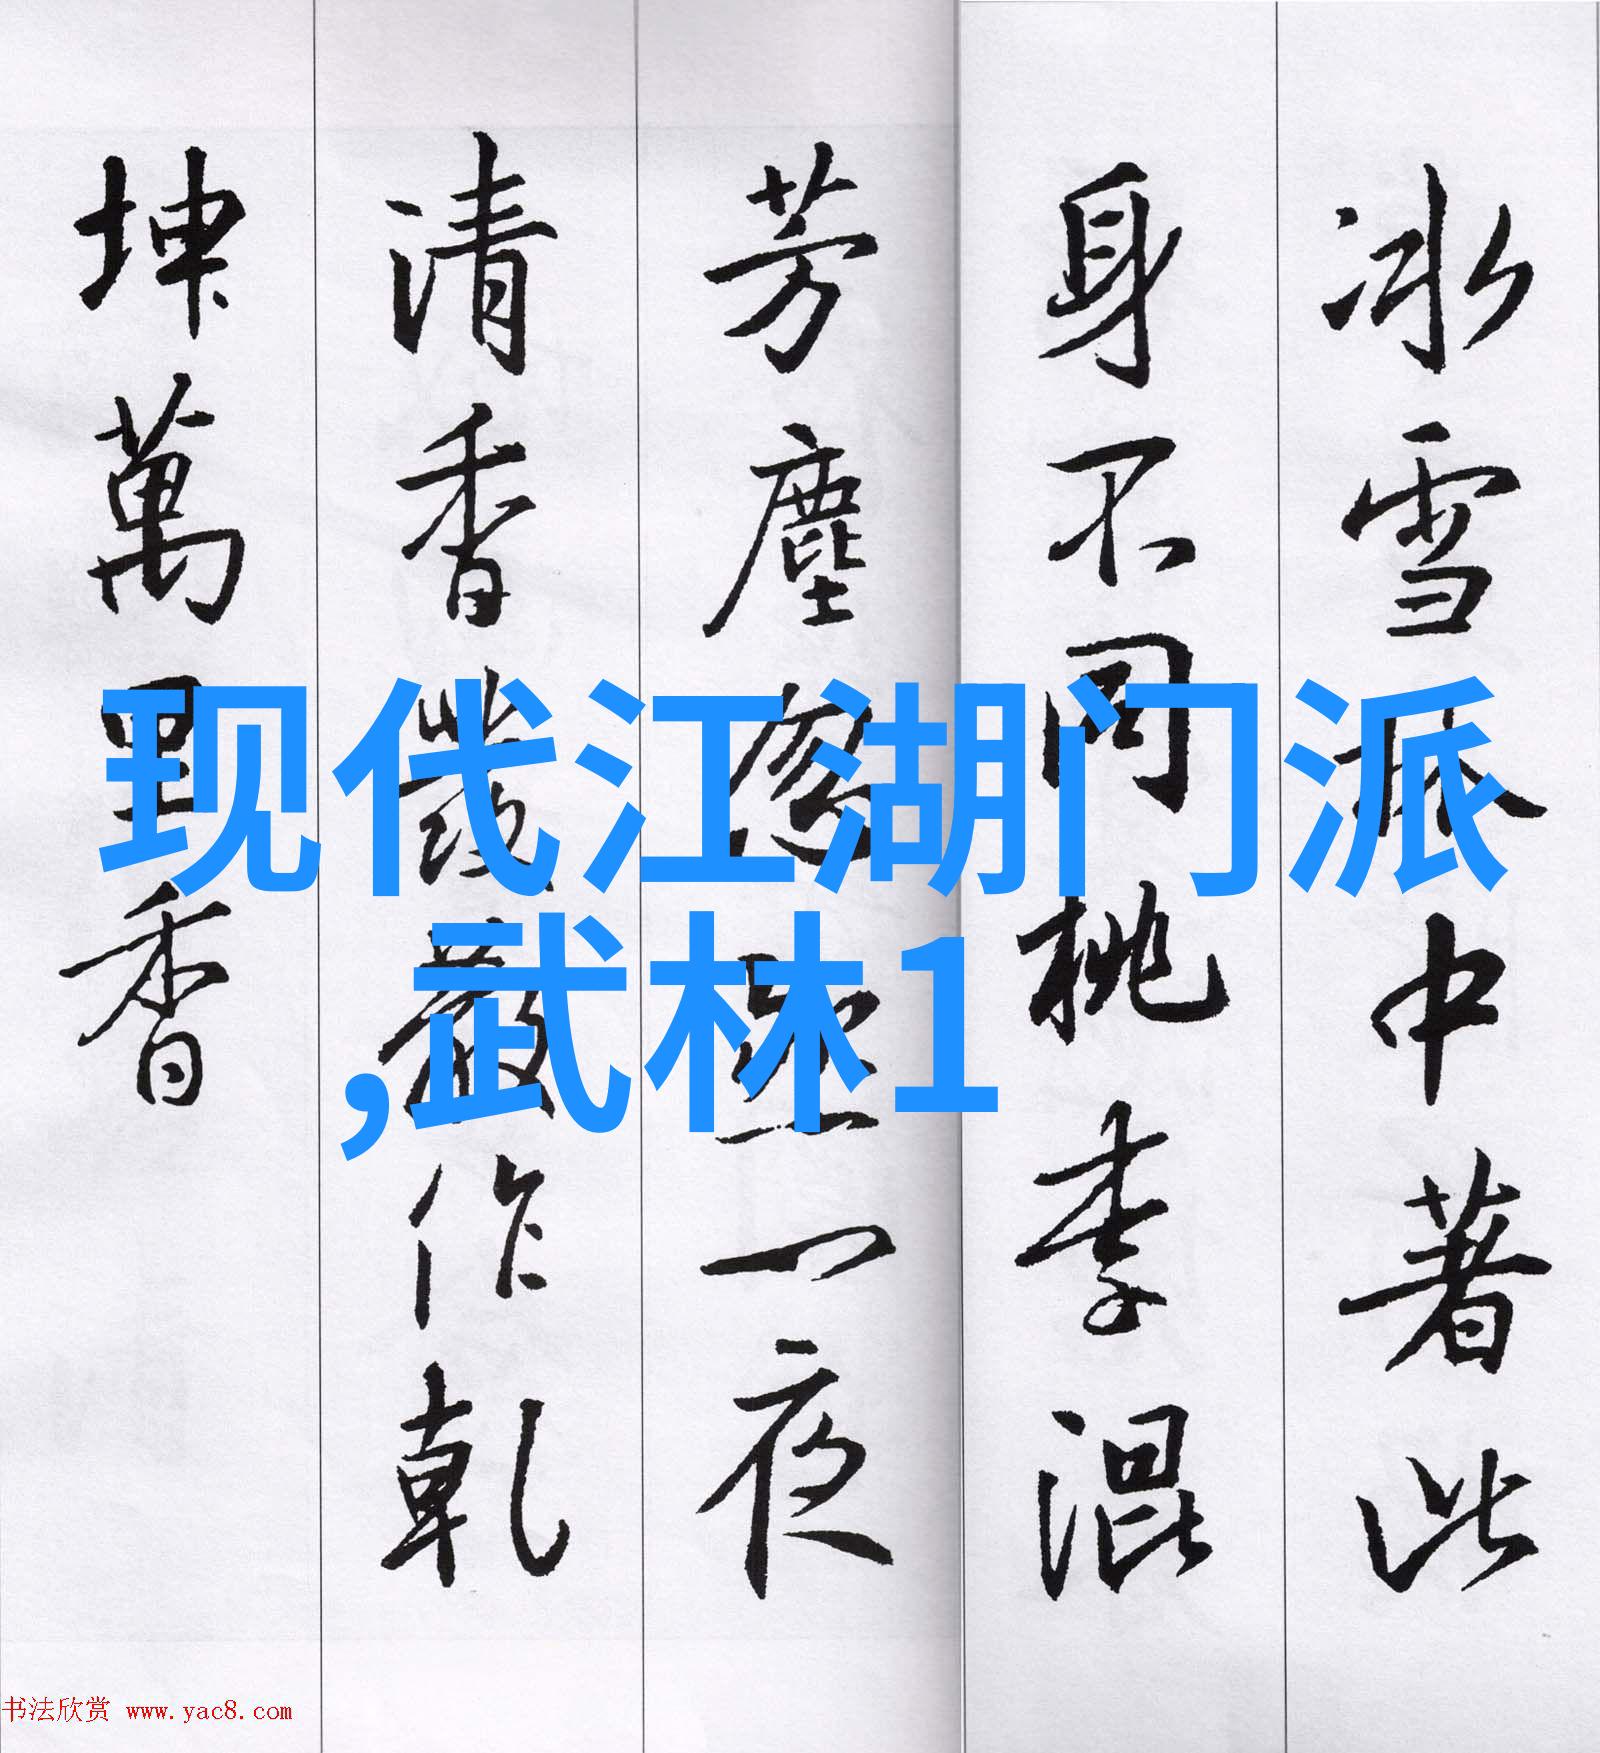 冰雪林中著此
身不同桃李混
芳塵忽然一夜
清香發散作乾
坤萬里香
现代江湖门派
,武林1
书法欣赏 www.yac8.com